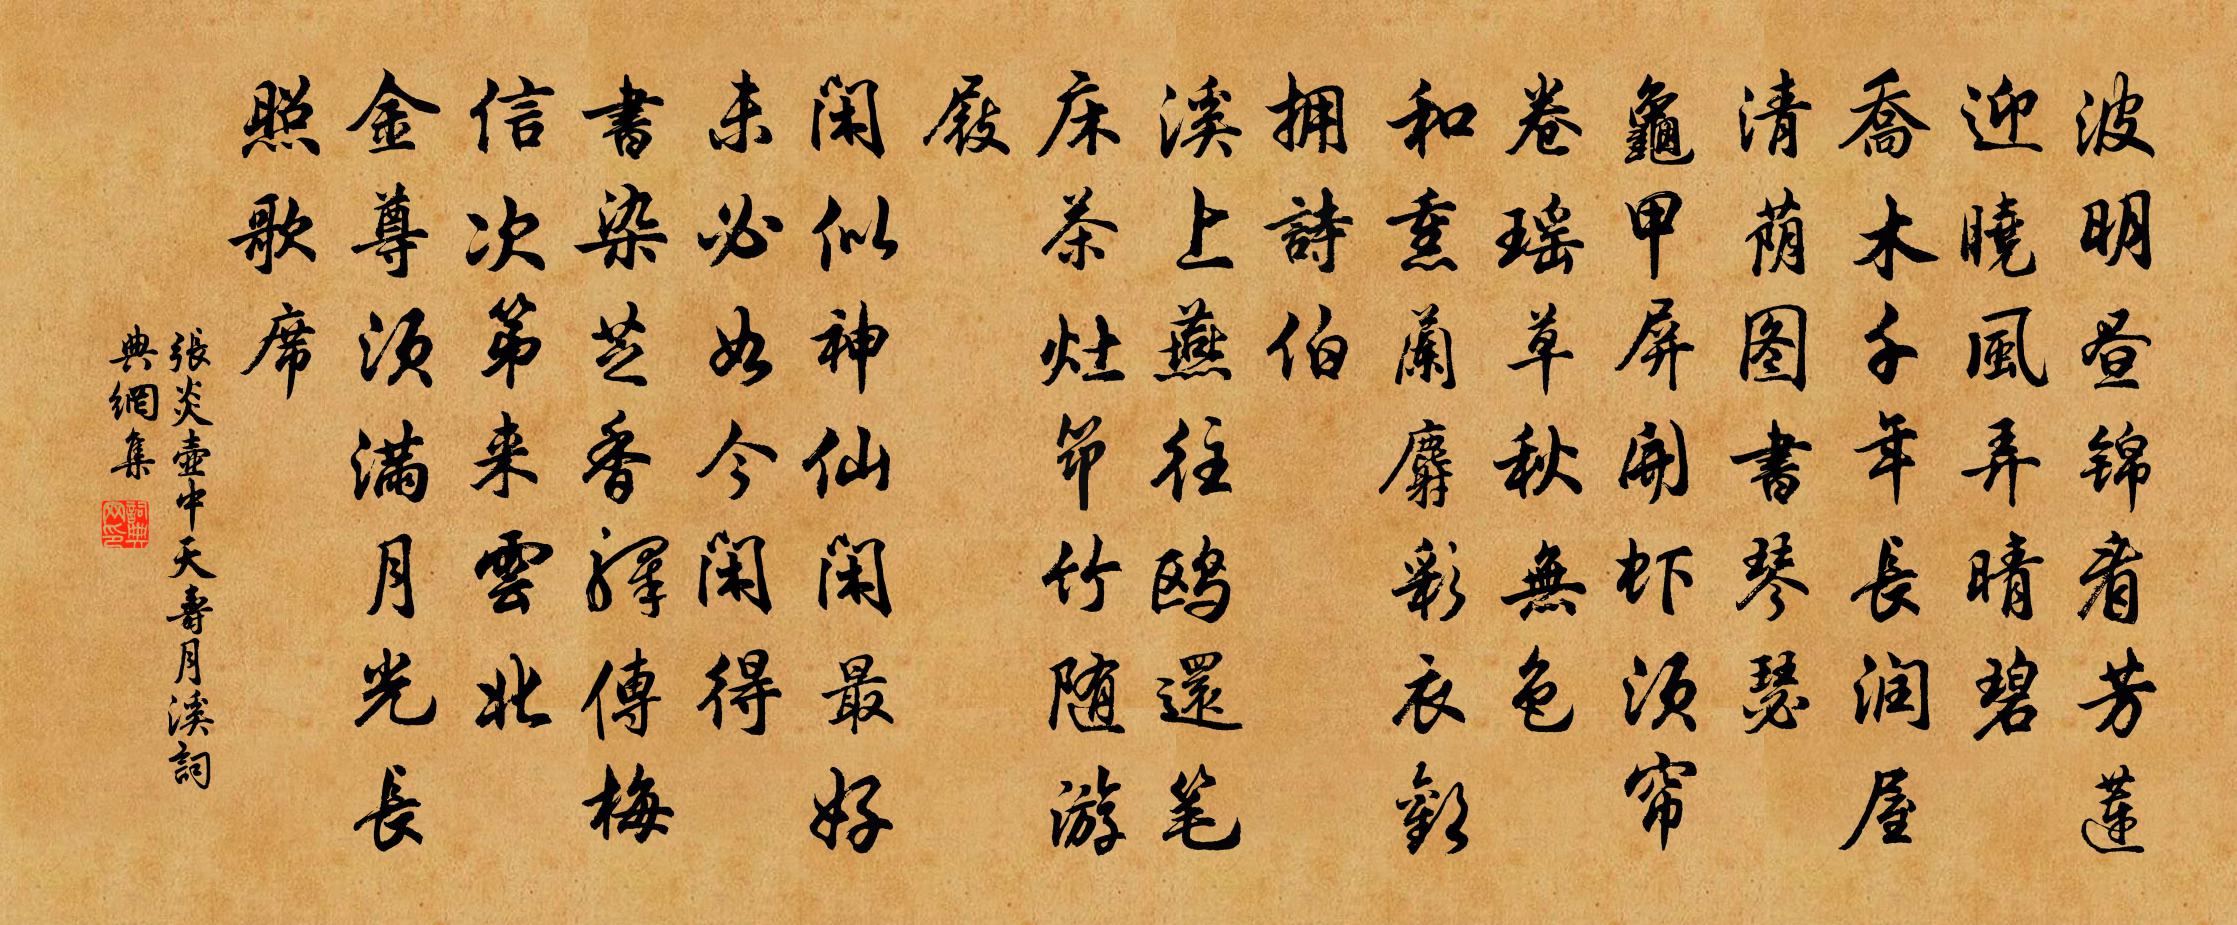 波明昼锦看芳莲
迎曉風弄晴碧
喬木千年長润屋
清荫图書琴瑟
龜甲屏開虾须帘
卷瑶草秋無色
和熏蘭麝彩衣歡
拥詩伯
溪上燕往鸥還笔
床茶灶筇竹随游
屐
閑似神仙閑最好
未必如今閑得
書染芝香驛傳梅
信次第来雲北
金尊须滿月光長
照歌席
張炎壺中天壽月溪詞
典網集
詞典网印